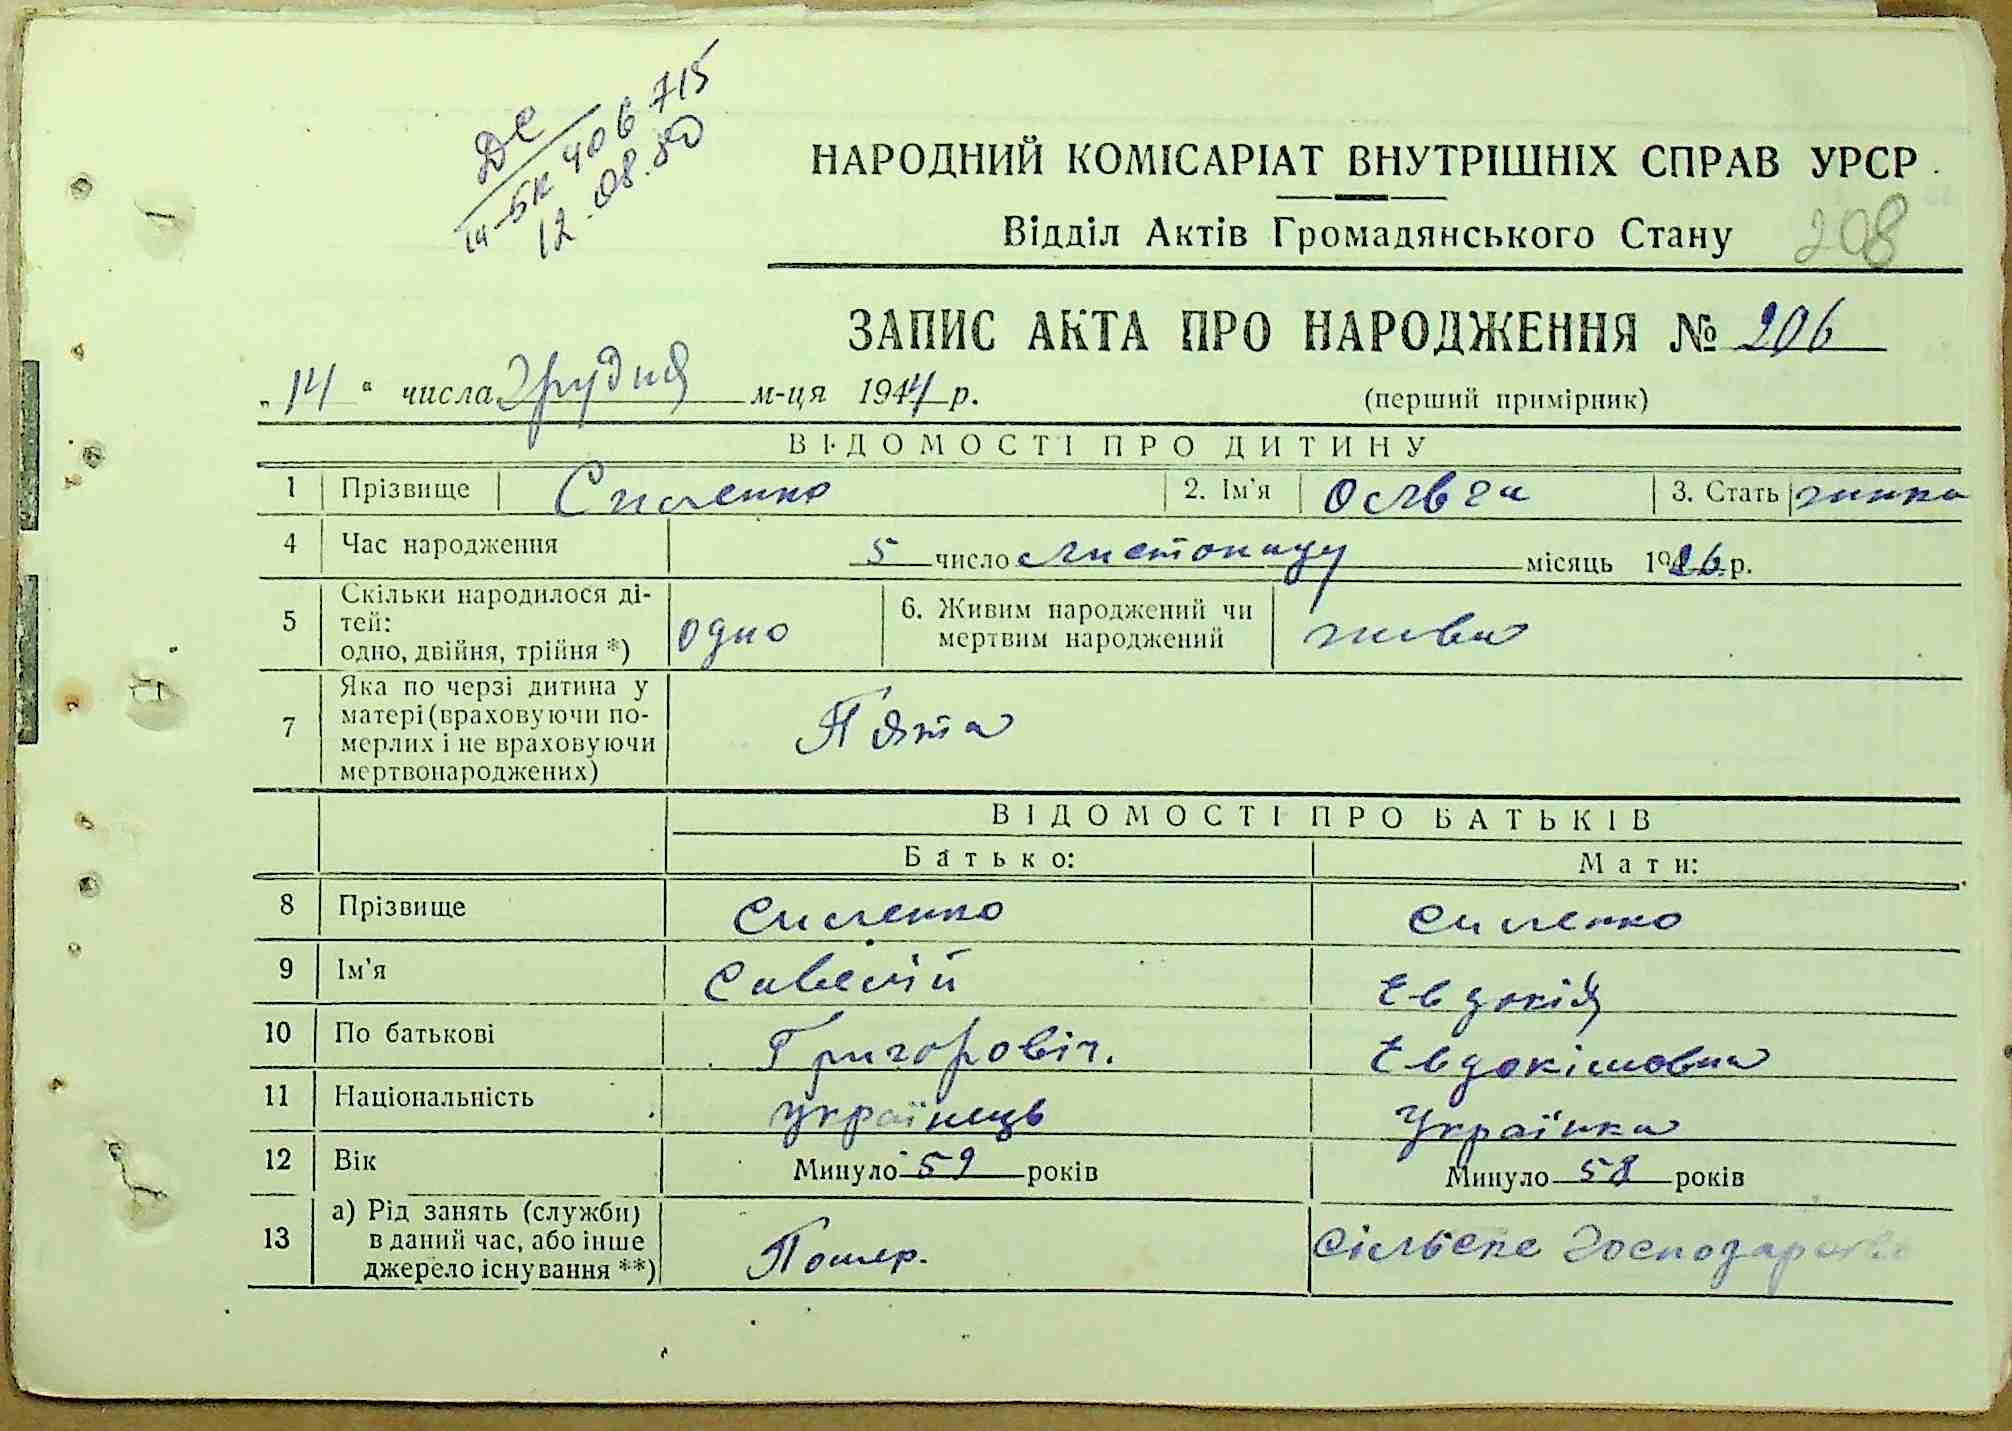 ДС
III-БК 406715
12.08.80
НАРОДНИЙ КОМІСАРІАТ ВНУТРІШНІХ СПРАВ УРСР
Відділ Актів Громадянського Стану 208
ЗАПИС АКТА ПРО НАРОДЖЕННЯ № 206
„14“ числа Грудня м-ця 1944 р. (перший примірник)
ВІДОМОСТІ ПРО ДИТИНУ
1 Прізвище Силенко 2. Ім'я Ольга 3. Стать жинка
4 Час народження 5 число листопаду місяць 1926 р.
5 Скільки народилося ді-
тей:
одно, двійня, трійня *) одно 6. Живим народжений чи
мертвим народжений жива
7 Яка по черзі дитина у
матері (враховуючи по-
мерлих і не враховуючи
мертвонароджених) Пята
ВІДОМОСТІ ПРО БАТЬКІВ
Батько: Мати:
8 Прізвище Силенко Силенко
9 Ім'я Савелій Евдокія
10 По батькові Григоровіч. Евдокімовна
11 Національність українець Українка
12 Вік Минуло 59 років Минуло 58 років
13 а) Рід занять (служби)
в даний час, або інше
джерело існування **) Помер. Сільске господарство